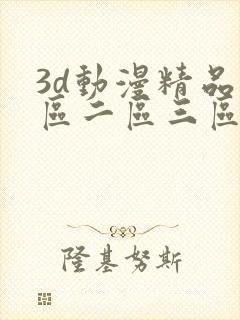 3d動漫精品
區二區三區
隆基努斯